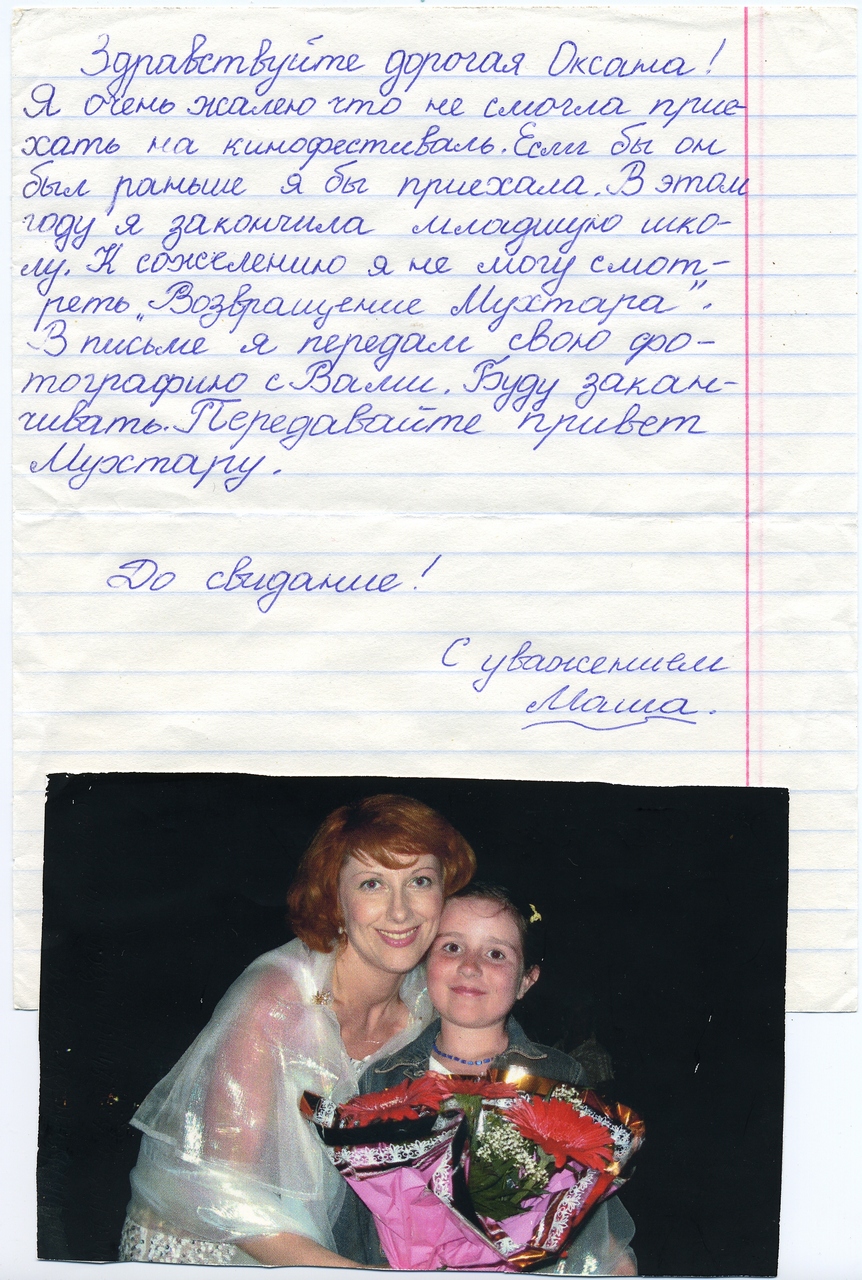 Здравствуйте дорогая Оксана!
Я очень жалею что не смогла прие-
хать на кинофестиваль. Если бы он
был раньше я бы приехала. В этом
году я закончила младшую шко-
лу. К сожелению я не могу смот-
реть „Возвращение Мухтара".
В письме я передам свою фо-
тографию с Вами. Буду закан-
чивать. Передавайте привет
Мухтару.
До свидание!
С уважением
Маша.